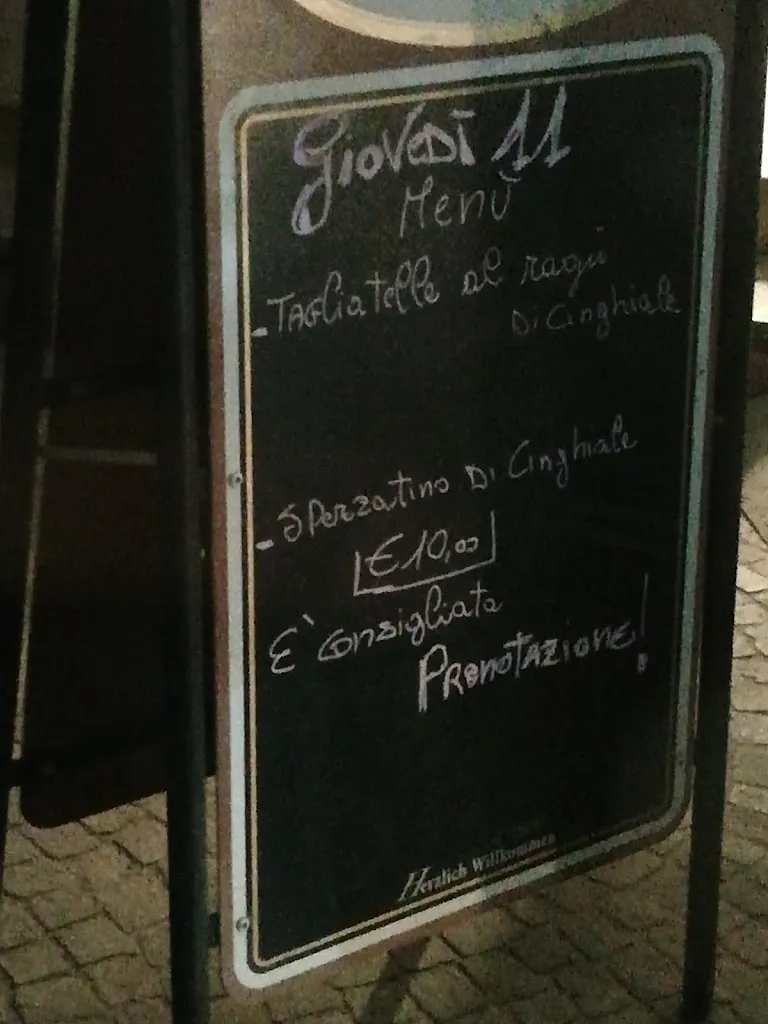 Giovedì 11
Menù
- Tagliatelle al ragù
Di Cinghiale
- Sperzatino Di Cinghiale
€10,00
E' consigliata
Pronotazione!
Herzlich Willkommen